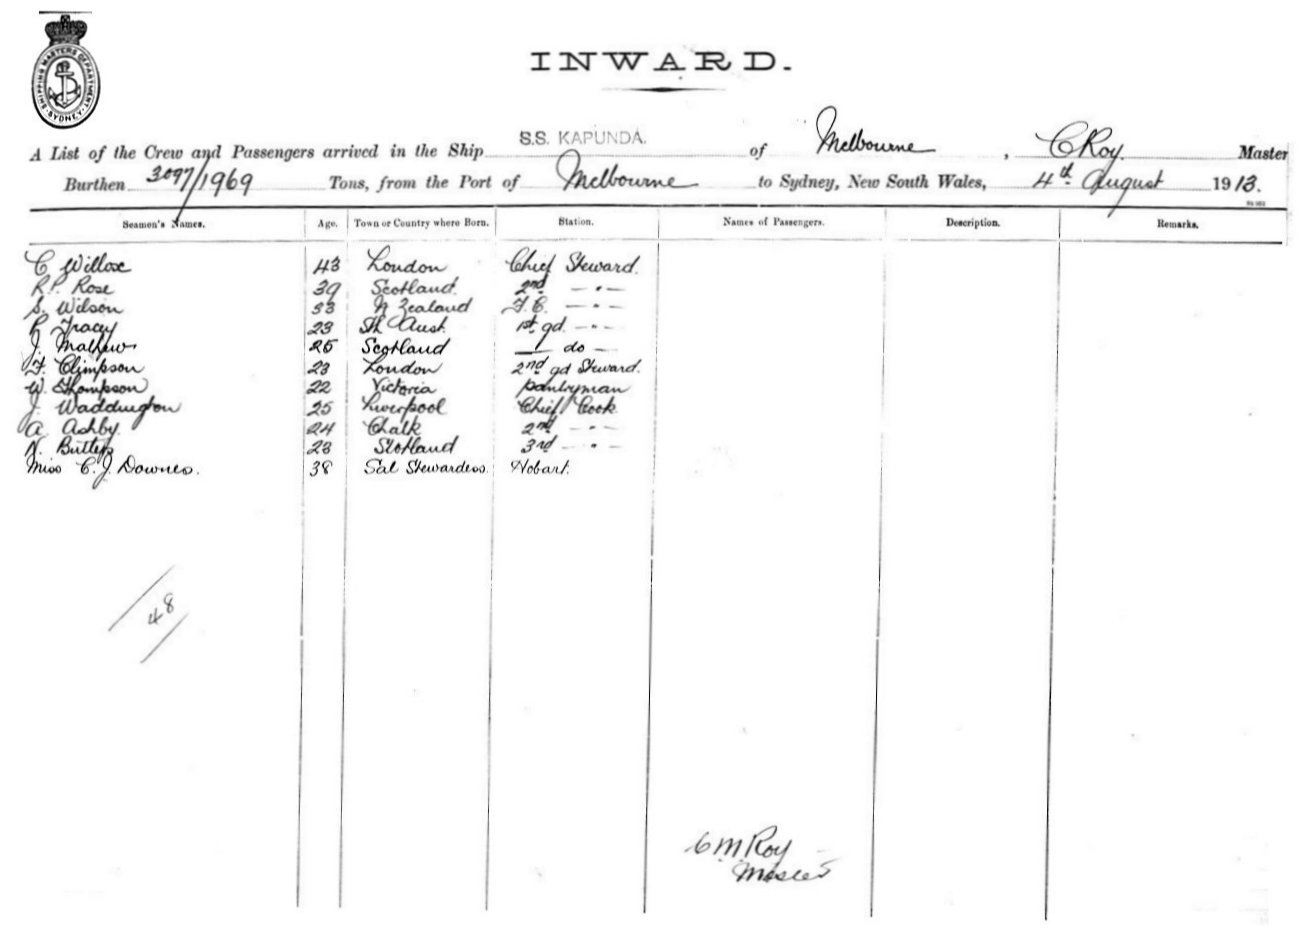 SHIPPING MASTERS DEPARTMENT SYDNEY
INWARD.
A List of the Crew and Passengers arrived in the Ship S.S. KAPUNDA. of Melbourne, C Roy. Master
Burthen 3097/1969 Tons, from the Port of Melbourne to Sydney, New South Wales, 4th August 1913.
Seamen's Names. Age. Town or Country where Born. Station. Names of Passengers. Description. Remarks.
C Willox 43 London Chief Steward.
R.P. Rose 39 Scotland. 2nd — " —
S. Wilson 33 N Zealand F.C. — " —
P Tracey 23 Sth Aust. 1st gd. — " —
J. Mathews 25 Scotland — do —
F. Climpson 23 London 2nd gd Steward.
W. Thompson 22 Victoria pantryman
J. Waddington 25 Liverpool Chief Cook
A. Ashby. 24 Chalk 2nd — " —
N. Butters 23 Scotland 3rd — " —
Miss C. J. Downes. 38 Sal Stewardess. Hobart.
48
C M Roy
Master